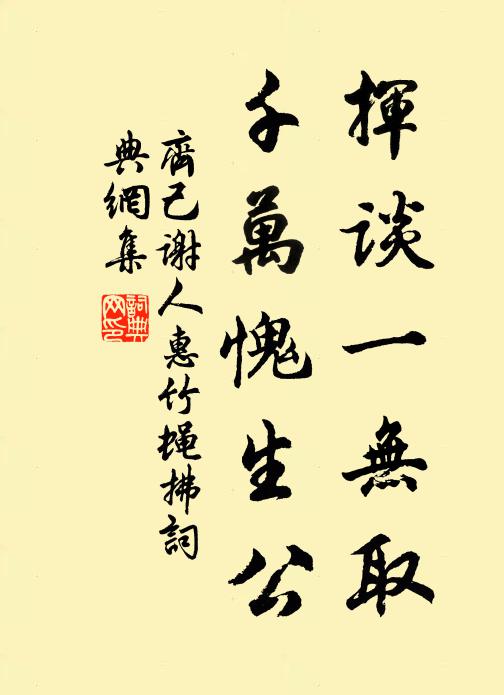 揮談一無取
千萬愧生公
齊己謝人惠竹蠅拂詞
典網集
詞典网印